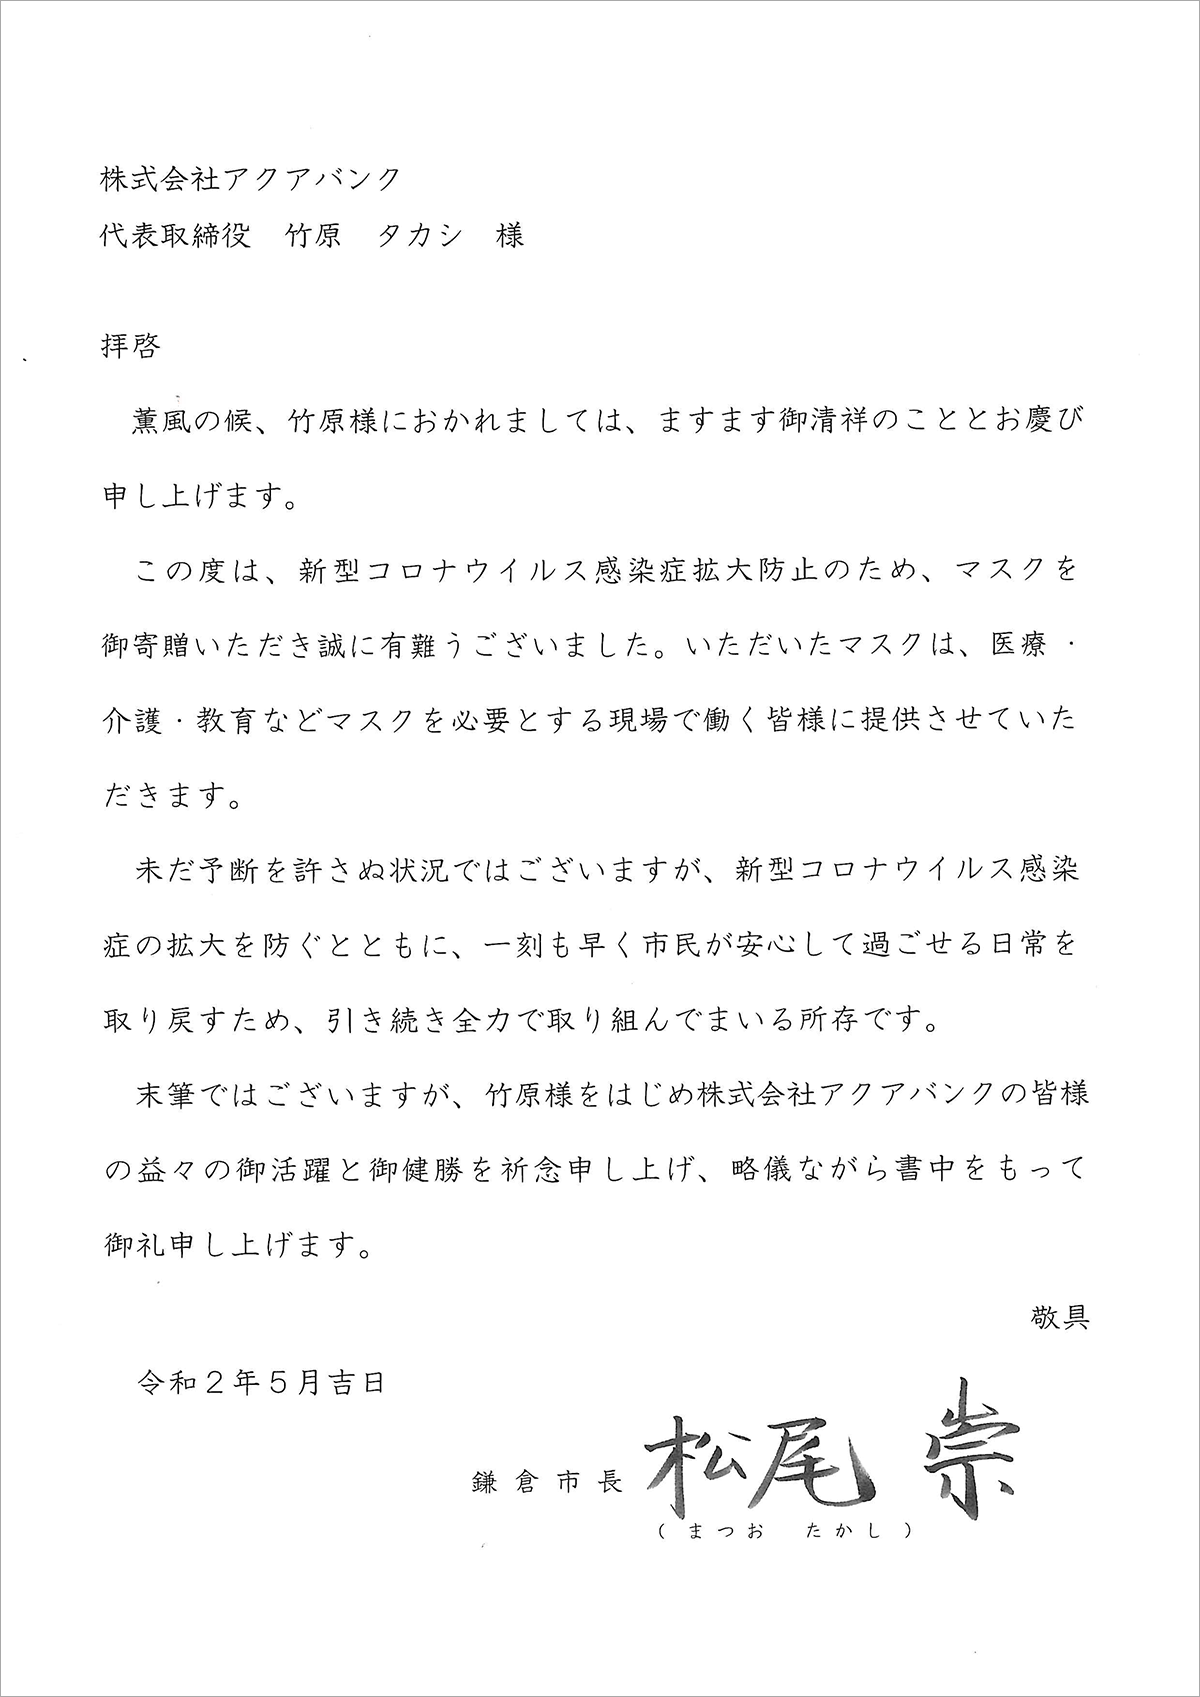 株式会社アクアバンク
代表取締役　竹原　タカシ　様
拝啓
　薫風の候、竹原様におかれましては、ますます御清祥のこととお慶び
申し上げます。
　この度は、新型コロナウイルス感染症拡大防止のため、マスクを
御寄贈いただき誠に有難うございました。いただいたマスクは、医療・
介護・教育などマスクを必要とする現場で働く皆様に提供させていた
だきます。
　未だ予断を許さぬ状況ではございますが、新型コロナウイルス感染
症の拡大を防ぐとともに、一刻も早く市民が安心して過ごせる日常を
取り戻すため、引き続き全力で取り組んでまいる所存です。
　末筆ではございますが、竹原様をはじめ株式会社アクアバンクの皆様
の益々の御活躍と御健勝を祈念申し上げ、略儀ながら書中をもって
御礼申し上げます。
敬具
令和２年５月吉日
鎌倉市長　松尾　崇
（まつお　たかし）